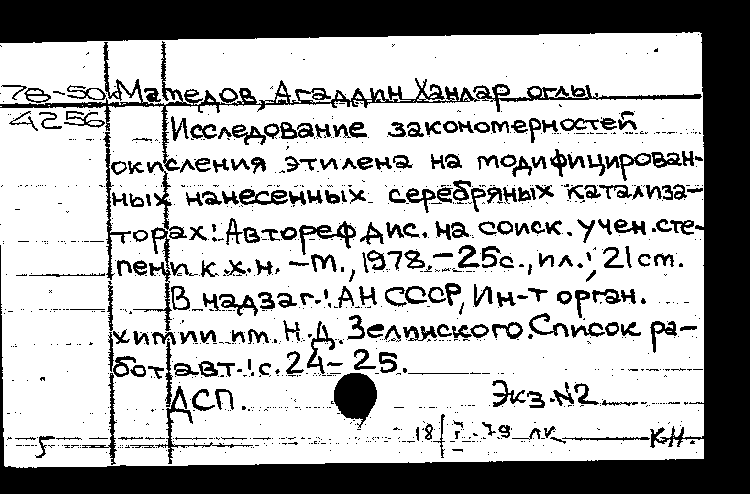 78-50к Мамедов, Агаддин Ханлар оглы.
4256 Исследование закономерностей
окисления этилена на модифицирован-
ных нанесенных серебряных катализа-
торах: Автореф дис. на соиск. учен. сте-
пени к.х.н. – М., 1978. – 25с., ил.; 21 см.
В надзаг.: АН СССР, Ин-т орган.
химии им. Н.Д. Зелинского. Список ра-
бот авт.: с. 24-25.
ДСП. Экз. №2
18/ 79 лк К.Н.
5